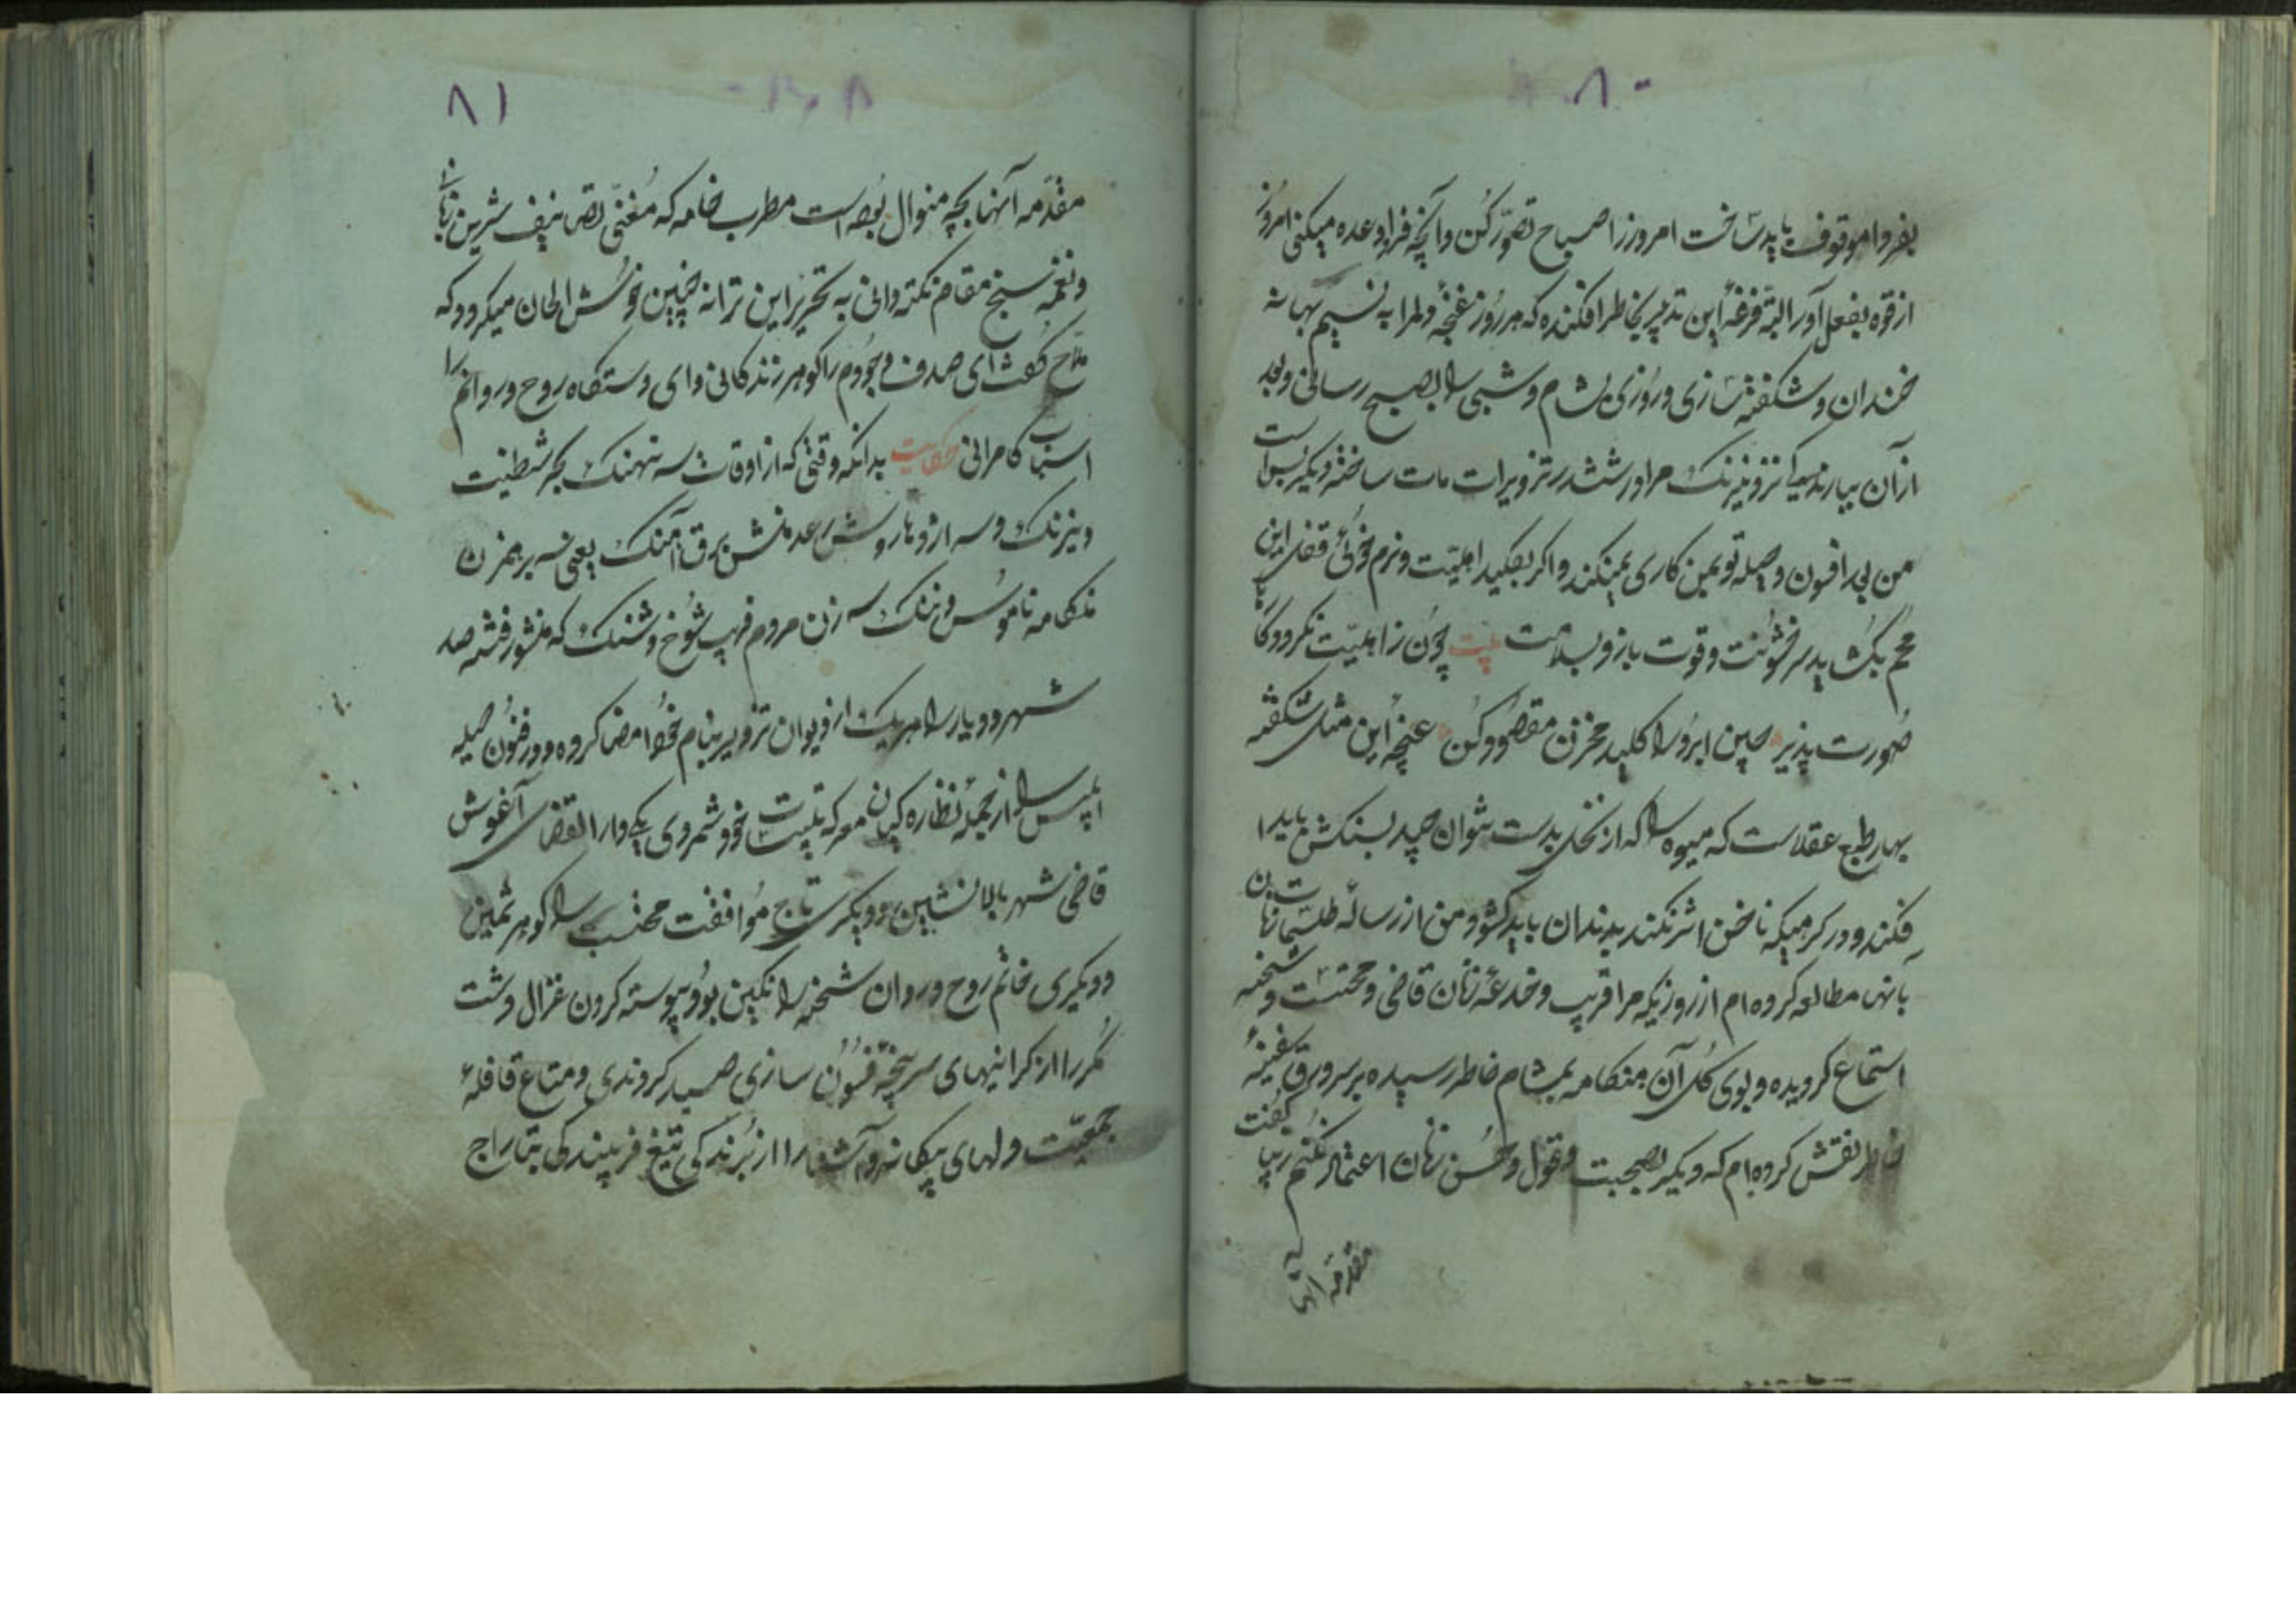 ۸۰
بفردا موقوف باید ساخت امروز را صباح تصوّر کن و آنچه فردا وعده میکنی امروز
از قوه بفعل آور البتّه قرعهٔ این تدبیر بخاطر افکنده که هر روز غنچهٔ دلها به نسیم بهانه
خندان و شکفته سازی و روزی بشام و شبی را بصبح رسانی و بعد
از آن بیاری نیرنک مرا در ششدر تزویرات مات ساخته دیگر بس است
من بعد افسون و حیله تو بمن کاری نمیکند و اگر بکلید اهلیّت و نرم خوئی قفل این
محکم بکشاید سر خشونت و قوت بازو بسلامت بیت چون ز اهلیّت نکردد کار
صورت پذیر چین ابرو را کلید مخزن مقصود کن غنچهٔ این مثل شکفته
بهار طبع عقلاست که میوه را که از نخل بدست نتوان چید بسنکش باید ا
فکند و در کرهیکه ناخن اثر نکند بدندان باید کشود من از رساله طلسمات زنان
بآنها مطالعه کرده ام از روزیکه مرا فریب و خدعهٔ زنان قاضی و محتسب و شحنه
استماع کردیده و بوی کل آن هنکامه بمشام خاطر رسیده بر سر ورق سفینهٔ
خاطر نقش کرده ام که دیگر بصحبت و قول و حسن زنان اعتماد نکنم زیبا گفت که
مقدمه آنها
۸۱
مقدّمه آنها بچه منوال بوده است مطرب خامه که مُغنّی تصانیف شیرین زبانی
و نغمه سنج مقام نکته دانی به تحریر این ترانه چنین خوش الحان میکردد که
ملّاح کفت ای صدف وجودم را کوهر زندکانی و ای دستکاه روح و روانم را
اسباب کامرانی حکایت بدانکه وقتی که از اوقات سه نهنک بحر شطنیت
و نیرنک و سه اژدهاروش رعد منش برق آهنک یعنی سه برهمزن
هنکامه ناموس و ننک سه زن مردم فریب شوخ و شنک که منشور فتنه صد
شهر و دیار را هریک از دیوان تزویر بنام خود امضا کرده و در فنون حیله
ابلیس را از جملهٔ نظاره کیان معرکه تلبیس خود شمردی یکی دار القضای آغوش
قاضی شهر بالا نشین و دیکری تاج موافقت محتسب را کوهر ثمین
و دیکری خاتم روح و روان شحنه را نکین بود پیوسته کردن غزال دشت
مکر را از کرانیهای سرپنجهٔ فسون سازی صید کردندی و متاع قافلهٔ
جمعیّت دلهای بیکانه و آشنا را از برندکی تیغ فریبندکی بتاراج